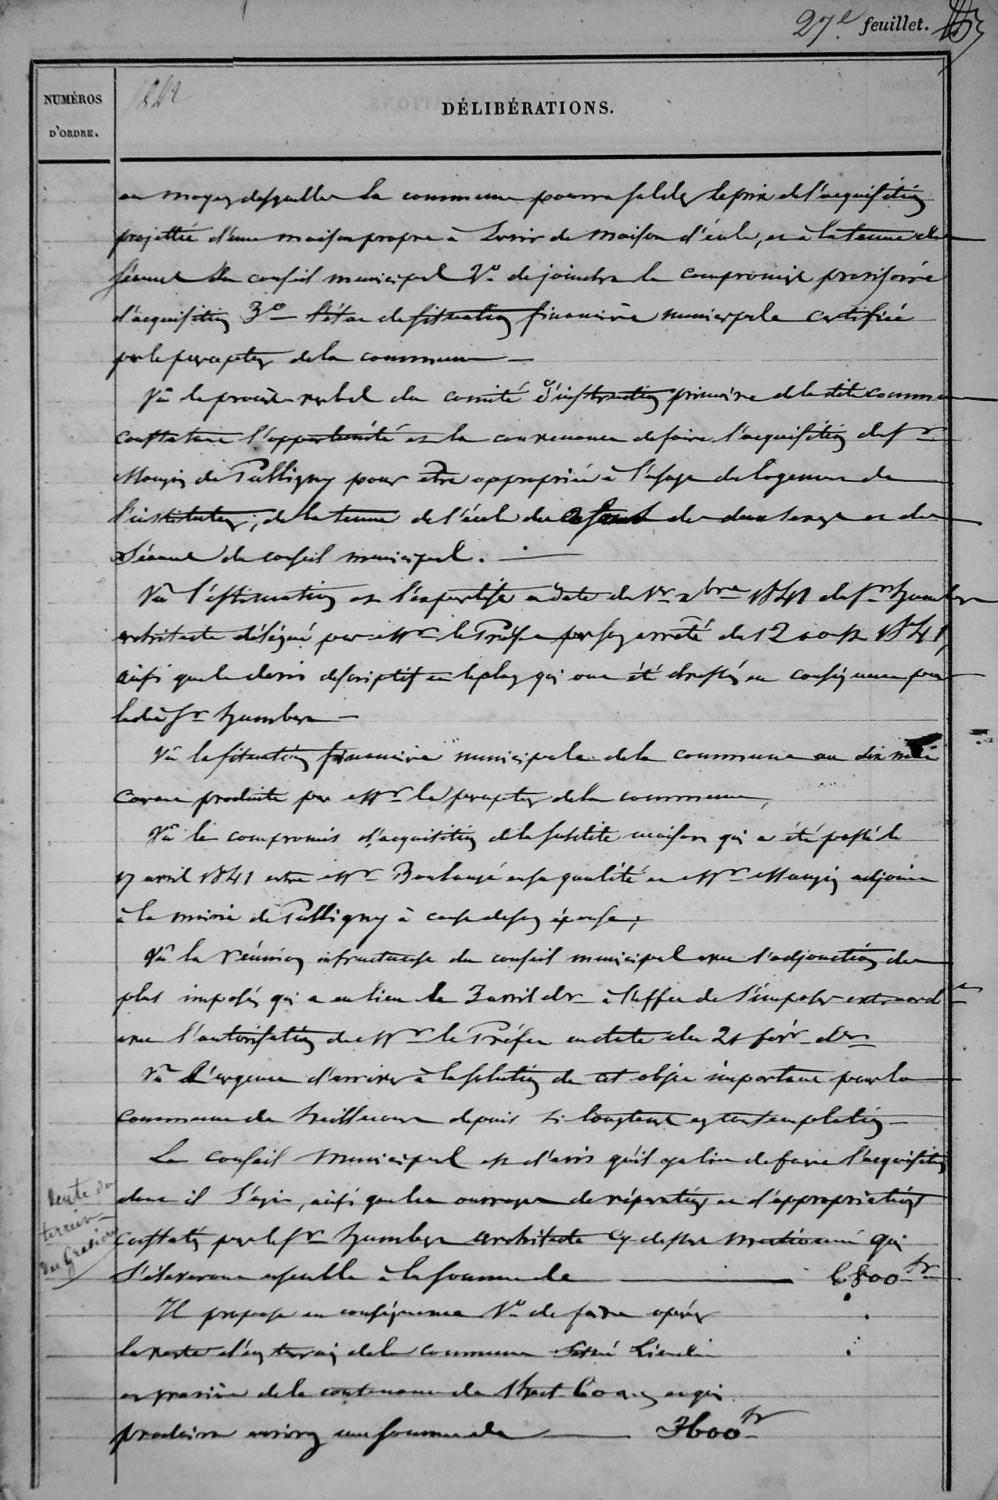 27e feuillet.
NUMÉROS
D'ORDRE.
DÉLIBÉRATIONS.
moyen desquelles la commune pourra solder le prix de l'acquisition
projettée d'une maison propre à servir de maison d'école, et à la tenue des
séances du conseil municipal 2o de joindre le compromis provisoire
d'acquisition 3o l'état de situation financière municipale certifiée
par le percepteur de la commune
Vû le procès verbal du comité d'instruction primaire de la dite commune
constatant l'opportunité et la convenance de faire l'acquisition du sr
Mangin de Pulligny pour être appropriée à l'usage de logement de
l'instituteur, de la tenue de l'école des enfants des deux sexes et des
séances du conseil municipal.
Vû l'estimation et l'expertise en date du 1er xbre 1841 du sr Humbert
architecte délégué par Mr le Préfet par son arrêté du 12 août 1841,
ainsi que le devis descriptif et le plan qui ont été dressés en conséquence par
ledit sr Humbert
Vû la situation financière municipale de la commune au dix mai
courant produite par Mr le percepteur de la commune,
Vû le compromis d'acquisition de la susdite maison qui a été passé le
17 avril 1841 entre Mr Boulangé en sa qualité et Mr Mangin adjoint
à la mairie de Pulligny à cause de son épouse,
Vû la réunion infructueuse du conseil municipal avec l'adjonction des
plus imposés qui a eu lieu le 3 avril der à l'effet de s'imposer extraord
avec l'autorisation de Mr le Préfet en date du 21 févr. der
Vû l'urgence d'arriver à la solution de cet objet important pour la
commune de depuis si longtems en contemplation
Le conseil municipal est d'avis qu'il y a lieu de faire l'acquisition
dont il s'agit, ainsi que les ouvrages de réparation et d'appropriation
constatés par le sr Humbert architecte cy dessus mentionné qui
s'élèveront ensemble à la somme de 6800 fr
Vente du
terrein
Il propose en conséquence 1o de faire opérer
la vente d'un terrain de la commune
en prairie de la contenance de et qui
produira environ une somme de 3600 fr